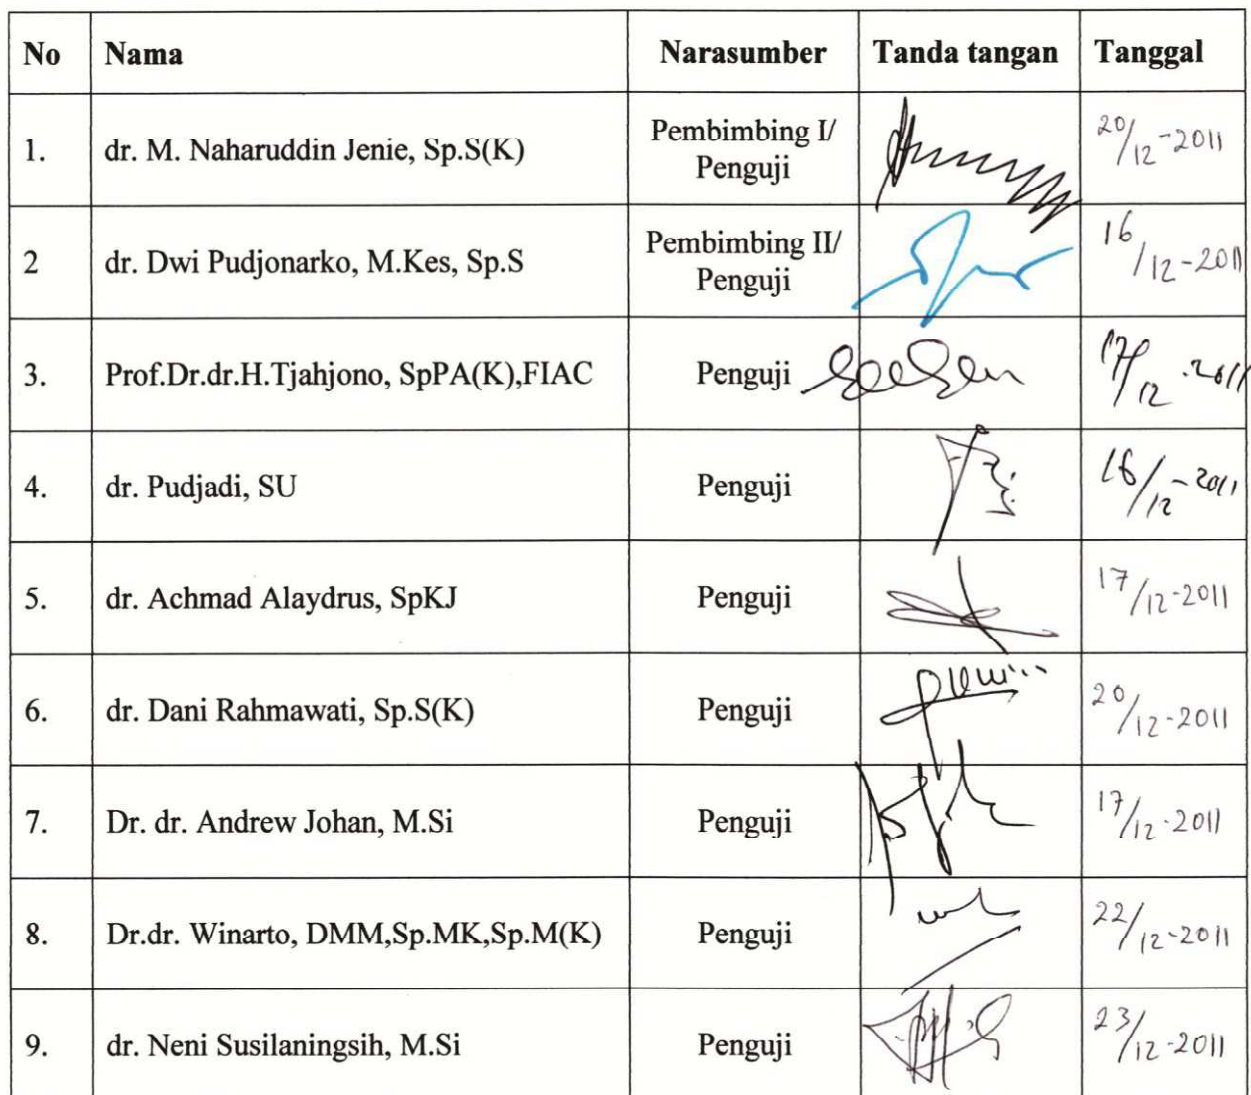 No Nama Narasumber Tanda tangan Tanggal
1. dr. M. Naharuddin Jenie, Sp.S(K) Pembimbing I/ Penguji 20/12-2011
2 dr. Dwi Pudjonarko, M.Kes, Sp.S Pembimbing II/ Penguji 16/12-2011
3. Prof.Dr.dr.H.Tjahjono, SpPA(K),FIAC Penguji 17/12.2011
4. dr. Pudjadi, SU Penguji 16/12-2011
5. dr. Achmad Alaydrus, SpKJ Penguji 17/12-2011
6. dr. Dani Rahmawati, Sp.S(K) Penguji 20/12-2011
7. Dr. dr. Andrew Johan, M.Si Penguji 17/12-2011
8. Dr.dr. Winarto, DMM,Sp.MK,Sp.M(K) Penguji 22/12-2011
9. dr. Neni Susilaningsih, M.Si Penguji 23/12-2011